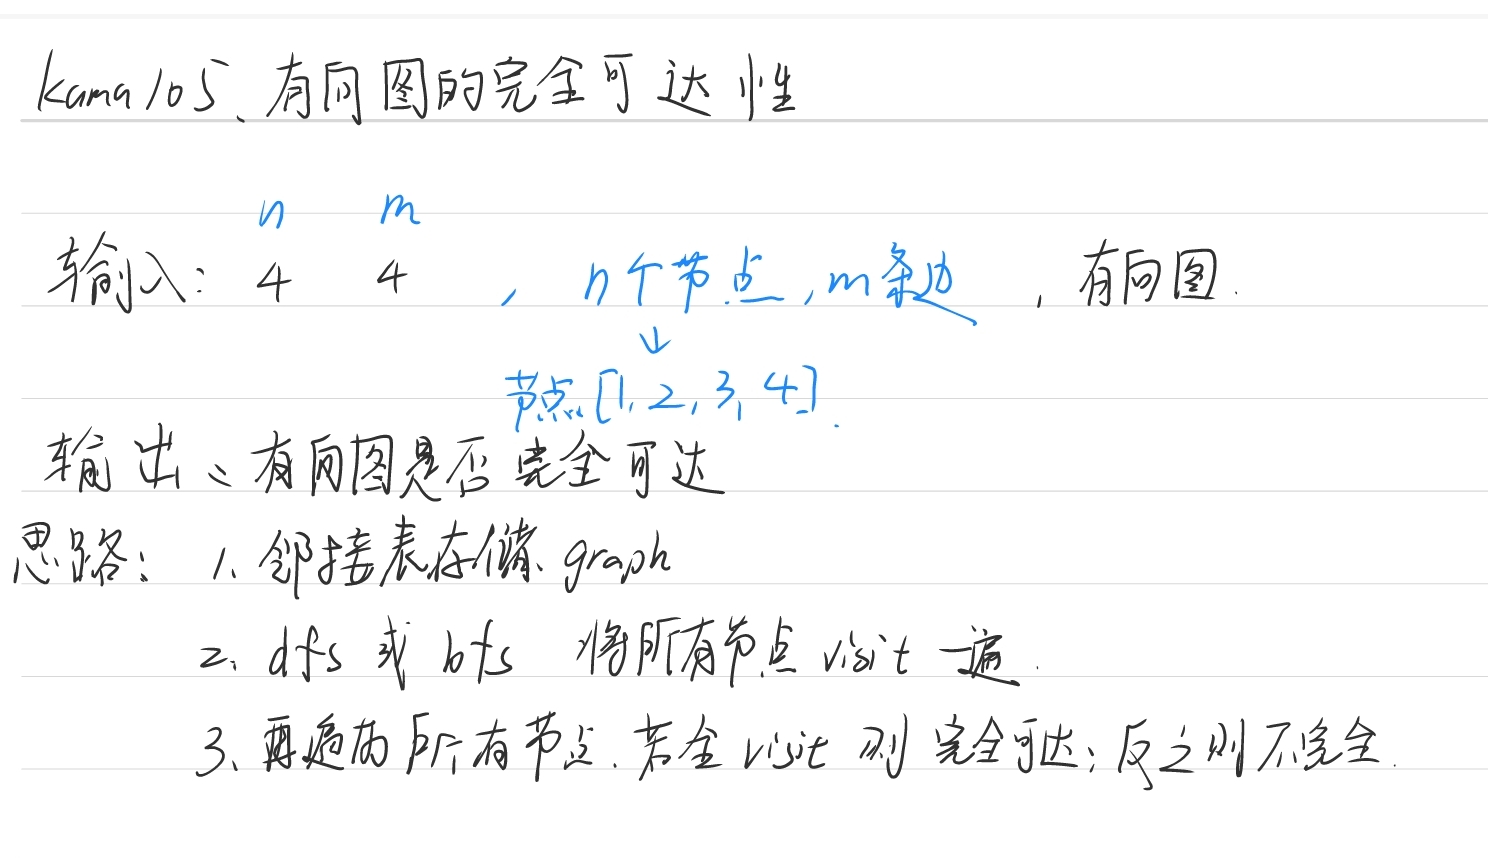 kama105、有向图的完全可达性
n m
输入: 4 4 , n个节点,m条边 , 有向图.
↓
节点[1,2,3,4].
输出: 有向图是否完全可达
思路: 1. 邻接表存储 graph
2. dfs 或 bfs 将所有节点 visit 一遍.
3. 再遍历所有节点. 若全 visit 则 完全可达; 反之则不完全.